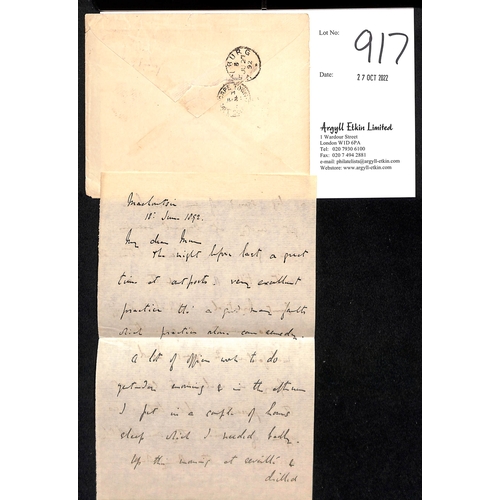 Lot No:
917
Date:
27 OCT 2022
Argyll Etkin Limited
1 Wardour Street
London W1D 6PA
Tel: 020 7930 6100
Fax: 020 7494 2881
e-mail: philatelists@argyll-etkin.com
Webstore: www.argyll-etkin.com
BURG
CAPE TOWN
18 June 1892.
My dear Mum
The night before last, a great
time at outposts. very excellent
practice tho' a good many faults
which practice alone can remedy.
A lot of office work to do
yesterday morning & in the afternoon
I put in a couple of hours
sleep which I needed badly.
Up this morning at &
drilled